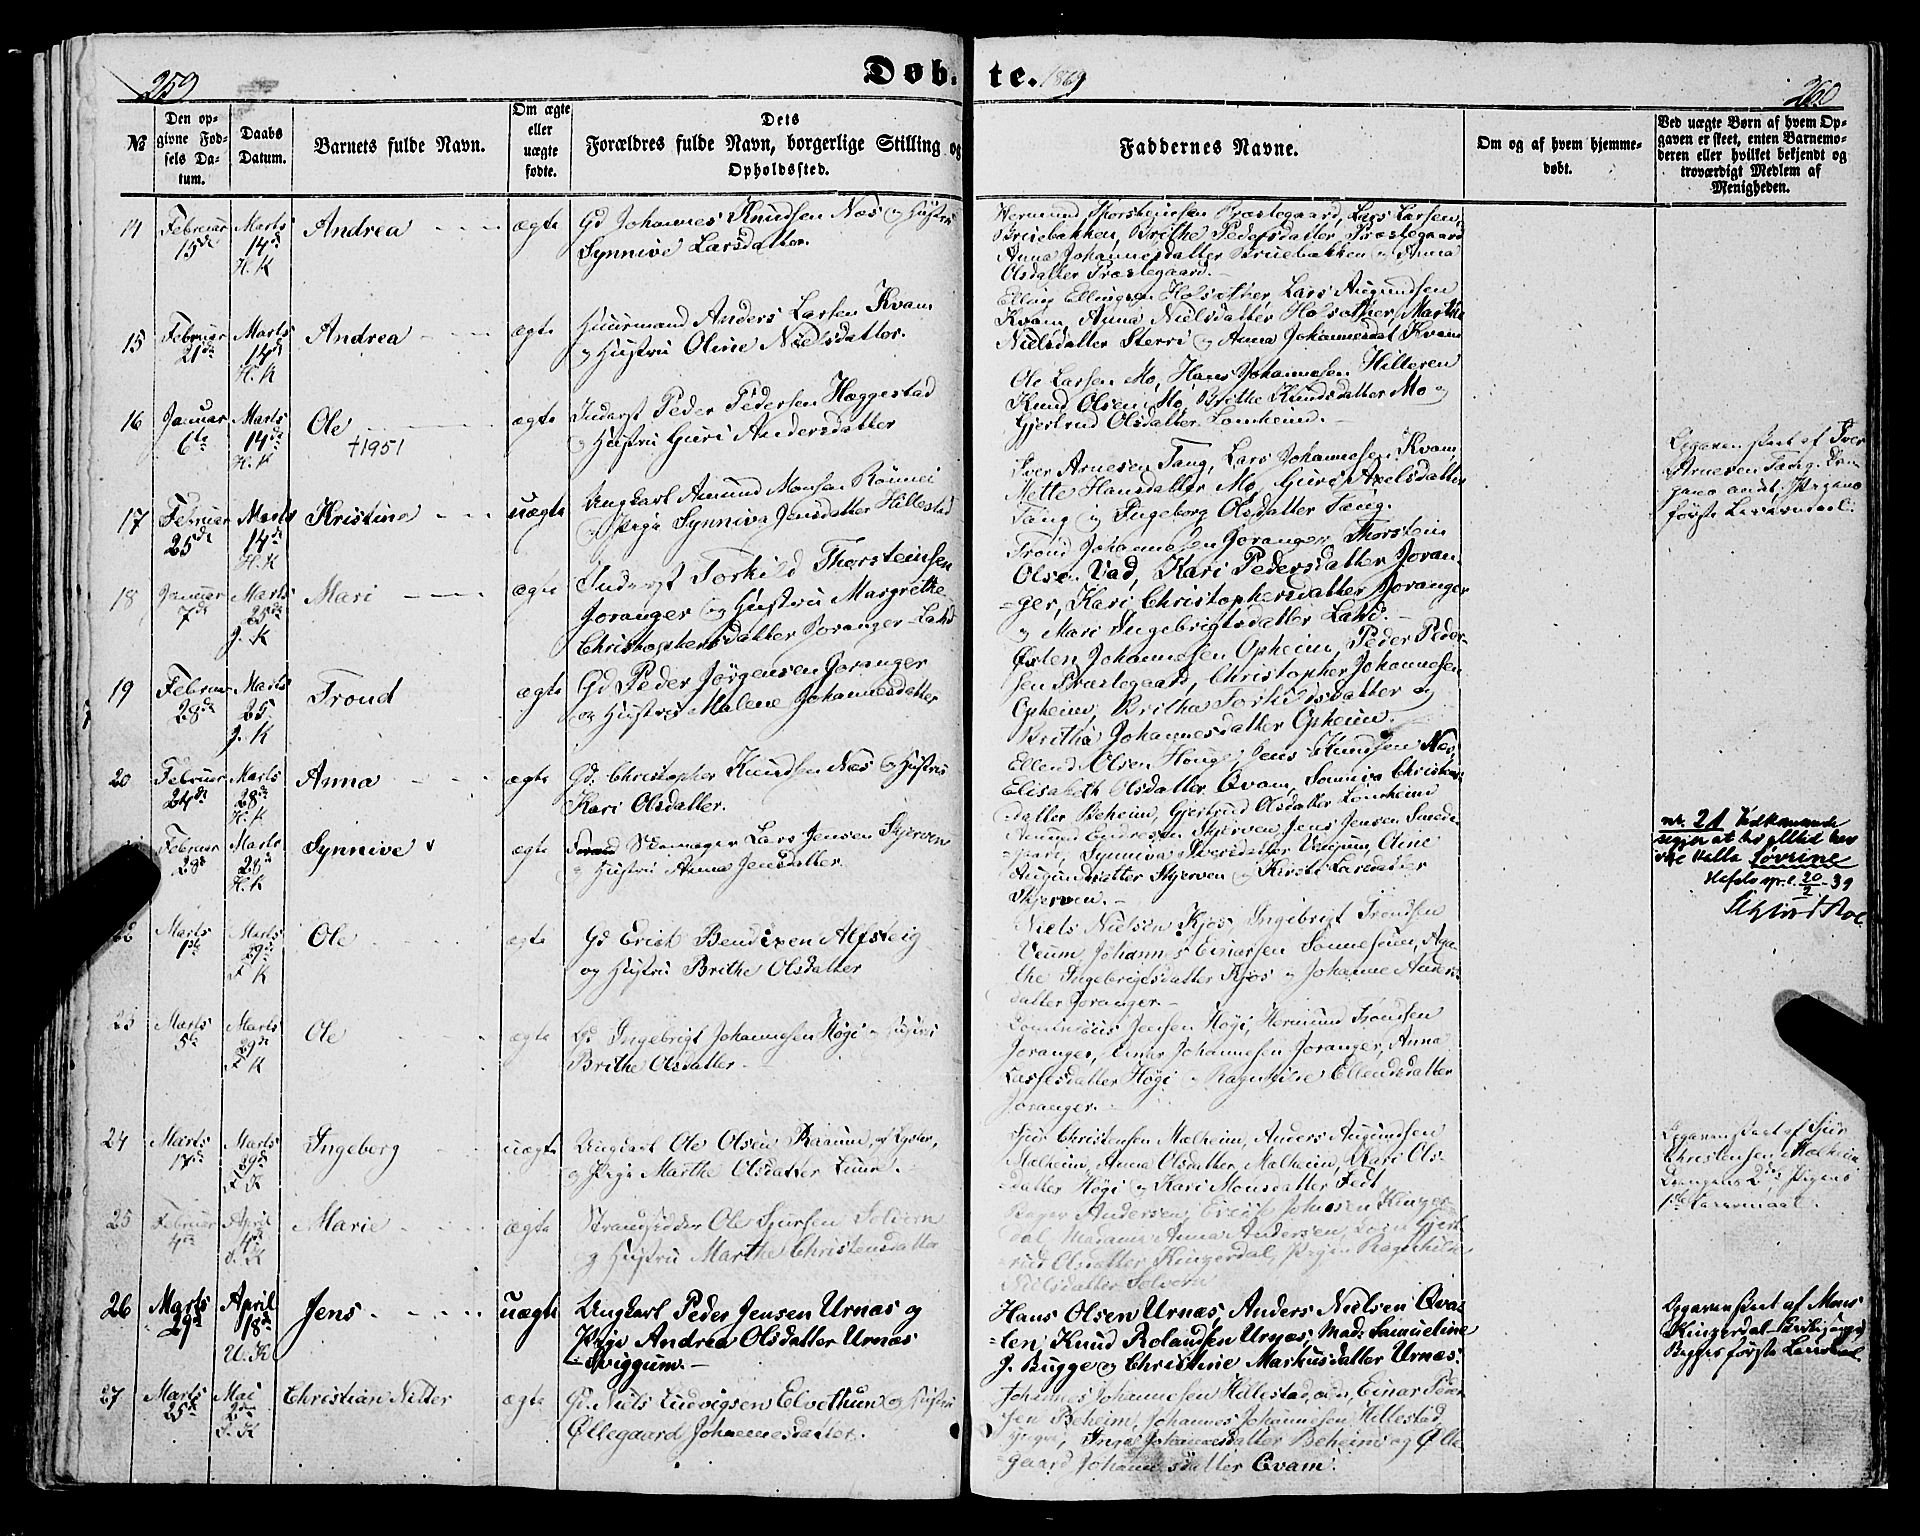 259
Døb-
te. 1869
260
№
Den op-
givne Fød-
sels Da-
tum.
Daabs
Datum.
Barnets fulde Navn.
Om ægte
eller
uægte
fødte.
Dets
Forældres fulde Navn, borgerlige Stilling og
Opholdssted.
Faddernes Navne.
Om og af hvem hjemme-
døbt.
Ved uægte Børn af hvem Op-
gaven er skeet, enten Barnemo-
deren eller hvilket bekjendt og
troværdigt Medlem af
Menigheden.
14 Februar 15de Marts 14de H. K Andrea ægte
Gd Johannes Knudsen Næs og Hustru
Synnive Larsdatter.
Hermund Thorsteinsen Præstegaard, Lars Larsen,
Bruebakken, Brithe Pedersdatter Præstegaard
Anna Johannesdatter Bruebakken og Anna
Olsdatter Præstegaard.
15 Februar 21de Marts 14de H. K Andrea ægte
Huusmand Anders Larsen Kvam
og Hustru Oline Nielsdatter.
Elling Ellingsen Holsæther, Lars Augundsen
Kvam, Anna Nielsdatter Holsæther, Marthe
Nielsdatter Sterri og Anna Johannesdat Kvam
16 Januar 6te Marts 14de H. K Ole ægte
†1951
Inderst Peder Pedersen Hæggestad
og Hustru Guri Andersdatter
Ole Larsen Mo, Hans Johannesen Hilleren
Knud Olsen Mo, Brithe Knudsdatter Mo og
Gjertrud Olsdatter Lomheim.
17 Februar 25de Marts 14de H. K Kristina uægte
Ungkarl Amund Monsen Rønnei
og Pige Synniva Jensdatter Hillestad
Iver Arnesen Tang, Lars Johannesen Kvam,
Mette Hansdatter Mo, Guri Axelsdatter
Tang og Ingeborg Olsdatter Tang.
Opgaven skeet af Iver
Arnesen Tang.
første Leiermaal.
18 Januar 7de Marts 25de J. K Mari ægte
Inderst Torkild Thorsteinsen
Joranger og Hustru Margrethe
Christophersdatter Joranger-Lahd
Trond Johannesen Joranger, Thorstein
Olsen Vad, Kari Pedersdatter Joran-
-ger, Kari Christophersdatter Joranger
og Mari Ingebrigtsdatter Lahd.
19 Februar 28de Marts 25 J. K Trond ægte
Gd Peder Jørgensen Joranger
og Hustru Malene Johannesdatter
Østen Johannesen Opheim, Peder Peder-
sen Præstegaard, Christopher Johannesen
Opheim, Britha Torkildsdatter og
Britha Johannesdatter Opheim.
20 Februar 24de Marts 28de H. K Anna ægte
Gd. Christopher Knudsen Næs og Hustru
Kari Olsdatter.
Ellend Olsen Houge, Jens Knudsen Næs,
Elisabeth Olsdatter Qvam, Synniva Christens-
datter Beheim, Gjertrud Olsdatter Lomheim
Februar 29de Marts 28de H. K Synnive ægte
Skomager Lars Jensen Skjerven
og Hustru Anna Jensdatter.
Amund Endresen Skjerven, Jens Jensen
Synniva Iversdatter Veum, Oline
Augundsdatter Skjerven og Kirsti Larsdatter
Skjerven.
nr. 21 Vedkommende
sier at hr alltid har
vært kalla Sovrine
Hafslo sp.e. 20/2-39
22 Marts 1ste Marts 29de F K Ole ægte
Gd Erick Bendixen Alfsteig
og Hustru Brithe Olsdatter
Niels Nielsen Kjos, Ingebrigt Trondsen
Veum, Johannes Einarsen Sønnesyn, Aga-
the Ingebrigtsdatter Kjos og Johanne Anders-
datter Joranger.
23 Marts 5te Marts 29de F K Ole ægte
Gd Ingebrigt Johannesen Høgi og Hustru
Brithe Olsdatter
Jensen Høgi, Hermund Trondsen
Joranger, Einar Johannesen Joranger, Anna
Lassesdatter Høgi og Ragnhilde Ellendsdatter
Joranger.
24 Marts 17de Marts 29de F K Ingeberg uægte
Ungkarl Ole Olsen Raaum, af Lyster,
og Pige Marthe Olsdatter
Sjur Christensen Malheim, Anders Augundsen
Malheim, Anna Olsdatter, Malheim, Kari Ols-
datter Høgi og Kari Monsdatter Fedt
Opgaven skeet af Sjur
Christensen Malheim
Drengens 2det Pigens
1ste Leiermaal.
25 Februar 4de April 4de S. K Marie ægte
Strandsidder Ole Sjursen Solvorn
og Hustru Marthe Christensdatter
Bager Andersen, Erick Johnsen Kinser-
dal, Madame Anna Andersen, Gjert-
rud Olsdatter Kinserdal, Pigen Ragnhilde
Nielsdatter Solvorn
26 Marts 29de April 18de U. K Jens uægte
Ungkarl Peder Jensen Urnæs og
Pige Andrea Olsdatter Urnæs
-Sviggum.
Hans Olsen Urnæs, Anders Nielsen Qva-
-len, Knud Rolandsen Urnæs, Mad: Samueline
J. Bugge og Christine Markusdatter Urnæs.
Opgaven skeet af Mons
Kinserdal-
Begges første Leiermaal.
27 Marts 25de Mai 2den S. K Christian Nitter ægte
Gd. Niels Ludvigsen Elvethun og Hustru
Øllegaard Johannesdatter.
Johannes Johannesen Hillestad, Einar Peder-
sen Beheim, Johannes Johannesen Hillestad,
yngre, Inga Johannesdatter Beheim og Ølle-
gaard Johannesdatter Qvam.